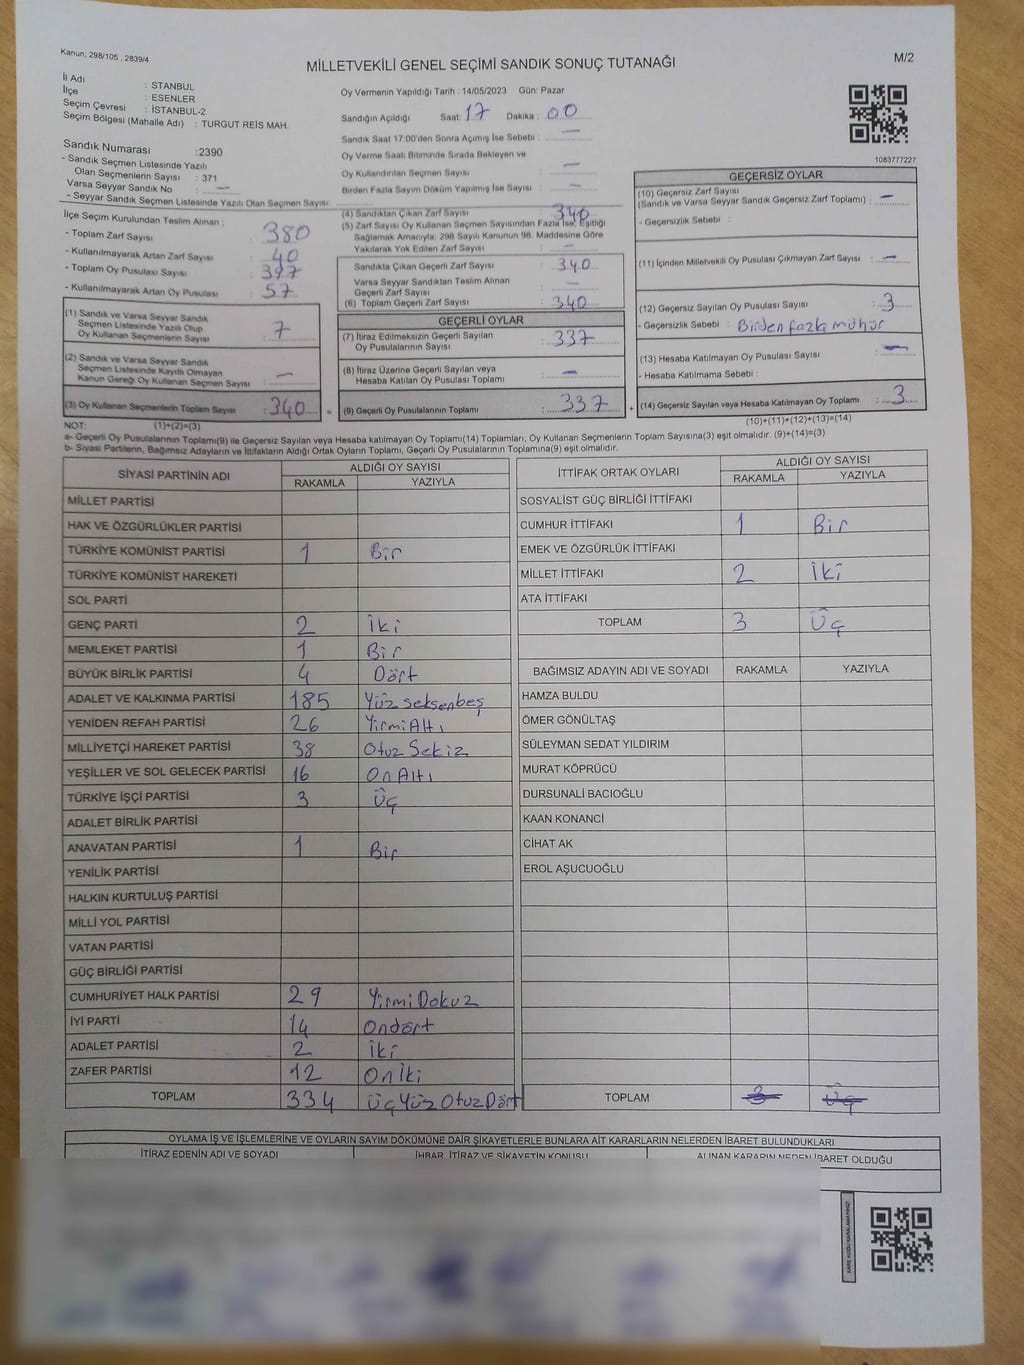 Kanun: 298/105 , 2839/4
M/2
MİLLETVEKİLİ GENEL SEÇİMİ SANDIK SONUÇ TUTANAĞI
İl Adı : STANBUL
İlçe : ESENLER
Seçim Çevresi : İSTANBUL-2
Seçim Bölgesi (Mahalle Adı) : TURGUT REİS MAH.
Sandık Numarası :2390
- Sandık Seçmen Listesinde Yazılı
Olan Seçmenlerin Sayısı : 371
Varsa Seyyar Sandık No : —
- Seyyar Sandık Seçmen Listesinde Yazılı Olan Seçmen Sayısı:
Oy Vermenin Yapıldığı Tarih : 14/05/2023 Gün: Pazar
Sandığın Açıldığı Saat: 17 Dakika : 00
Sandık Saat 17:00'den Sonra Açımış İse Sebebi : —
Oy Verme Saati Bitiminde Sırada Bekleyen ve
Oy Kullandırılan Seçmen Sayısı : —
Birden Fazla Sayım Döküm Yapılmış İse Sayısı : —
1083777227
İlçe Seçim Kurulundan Teslim Alınan :
- Toplam Zarf Sayısı 380
- Kullanılmayarak Artan Zarf Sayısı : 40
- Toplam Oy Pusulası Sayısı 397
- Kullanılmayarak Artan Oy Pusulası : 57
(1) Sandık ve Varsa Seyyar Sandık
Seçmen Listesinde Yazılı Olup
Oy Kullanan Seçmenlerin Sayısı : 7
(2) Sandık ve Varsa Seyyar Sandık
Seçmen Listesinde Kayıtlı Olmayan
Kanun Gereği Oy Kullanan Seçmen Sayısı : —
(3) Oy Kullanan Seçmenlerin Toplam Sayısı : 340
(4) Sandıktan Çıkan Zarf Sayısı : 340
(5) Zarf Sayısı Oy Kullanan Seçmen Sayısından Fazla İse, Eşitliği
Sağlamak Amacıyla, 298 Sayılı Kanunun 98. Maddesine Göre
Yakılarak Yok Edilen Zarf Sayısı : —
Sandıkta Çıkan Geçerli Zarf Sayısı : 340
Varsa Seyyar Sandıktan Teslim Alınan
Geçerli Zarf Sayısı : —
(6) Toplam Geçerli Zarf Sayısı : 340
GEÇERLİ OYLAR
(7) İtiraz Edilmeksizin Geçerli Sayılan
Oy Pusulalarının Sayısı : 337
(8) İtiraz Üzerine Geçerli Sayılan veya
Hesaba Katılan Oy Pusulası Toplamı : —
= (9) Geçerli Oy Pusulalarının Toplamı : 337
GEÇERSİZ OYLAR
(10) Geçersiz Zarf Sayısı
(Sandık ve Varsa Seyyar Sandık Geçersiz Zarf Toplamı) : —
- Geçersizlik Sebebi :
(11) İçinden Milletvekili Oy Pusulası Çıkmayan Zarf Sayısı : —
(12) Geçersiz Sayılan Oy Pusulası Sayısı : 3
- Geçersizlik Sebebi : Birden fazla mühür
(13) Hesaba Katılmayan Oy Pusulası Sayısı : —
- Hesaba Katılmama Sebebi :
+ (14) Geçersiz Sayılan veya Hesaba Katılmayan Oy Toplamı : 3
NOT: (1)+(2)=(3)
(10)+(11)+(12)+(13)=(14)
a- Geçerli Oy Pusulalarının Toplamı(9) ile Geçersiz Sayılan veya Hesaba katılmayan Oy Toplamı(14) Toplamları, Oy Kullanan Seçmenlerin Toplam Sayısına(3) eşit olmalıdır. (9)+(14)=(3)
b- Siyasi Partilerin, Bağımsız Adayların ve İttifakların Aldığı Ortak Oyların Toplamı, Geçerli Oy Pusulalarının Toplamına(9) eşit olmalıdır.
SİYASİ PARTİNİN ADI ALDIĞI OY SAYISI
RAKAMLA YAZIYLA
MİLLET PARTİSİ
HAK VE ÖZGÜRLÜKLER PARTİSİ
TÜRKİYE KOMÜNİST PARTİSİ 1 Bir
TÜRKİYE KOMÜNİST HAREKETİ
SOL PARTİ
GENÇ PARTİ 2 İki
MEMLEKET PARTİSİ 1 Bir
BÜYÜK BİRLİK PARTİSİ 4 Dört
ADALET VE KALKINMA PARTİSİ 185 Yüz seksenbeş
YENİDEN REFAH PARTİSİ 26 Yirmi Altı
MİLLİYETÇİ HAREKET PARTİSİ 38 Otuz Sekiz
YEŞİLLER VE SOL GELECEK PARTİSİ 16 On Altı
TÜRKİYE İŞÇİ PARTİSİ 3 Üç
ADALET BİRLİK PARTİSİ
ANAVATAN PARTİSİ 1 Bir
YENİLİK PARTİSİ
HALKIN KURTULUŞ PARTİSİ
MİLLİ YOL PARTİSİ
VATAN PARTİSİ
GÜÇ BİRLİĞİ PARTİSİ
CUMHURİYET HALK PARTİSİ 29 Yirmi Dokuz
İYİ PARTİ 14 Ondört
ADALET PARTİSİ 2 İki
ZAFER PARTİSİ 12 On İki
TOPLAM 334 Üç Yüz Otuz Dört
İTTİFAK ORTAK OYLARI ALDIĞI OY SAYISI
RAKAMLA YAZIYLA
SOSYALİST GÜÇ BİRLİĞİ İTTİFAKI
CUMHUR İTTİFAKI 1 Bir
EMEK VE ÖZGÜRLÜK İTTİFAKI
MİLLET İTTİFAKI 2 İki
ATA İTTİFAKI
TOPLAM 3 Üç
BAĞIMSIZ ADAYIN ADI VE SOYADI RAKAMLA YAZIYLA
HAMZA BULDU
ÖMER GÖNÜLTAŞ
SÜLEYMAN SEDAT YILDIRIM
MURAT KÖPRÜCÜ
DURSUNALİ BACIOĞLU
KAAN KONANCİ
CİHAT AK
EROL AŞUCUOĞLU
TOPLAM 3 Üç
OYLAMA İŞ VE İŞLEMLERİNE VE OYLARIN SAYIM DÖKÜMÜNE DAİR ŞİKAYETLERLE BUNLARA AİT KARARLARIN NELERDEN İBARET BULUNDUKLARI
İTİRAZ EDENİN ADI VE SOYADI İHBAR, İTİRAZ VE ŞİKAYETİN KONUSU ALINAN KARARIN NEDEN İBARET OLDUĞU
KARE KODU KARALAMAYINIZ!